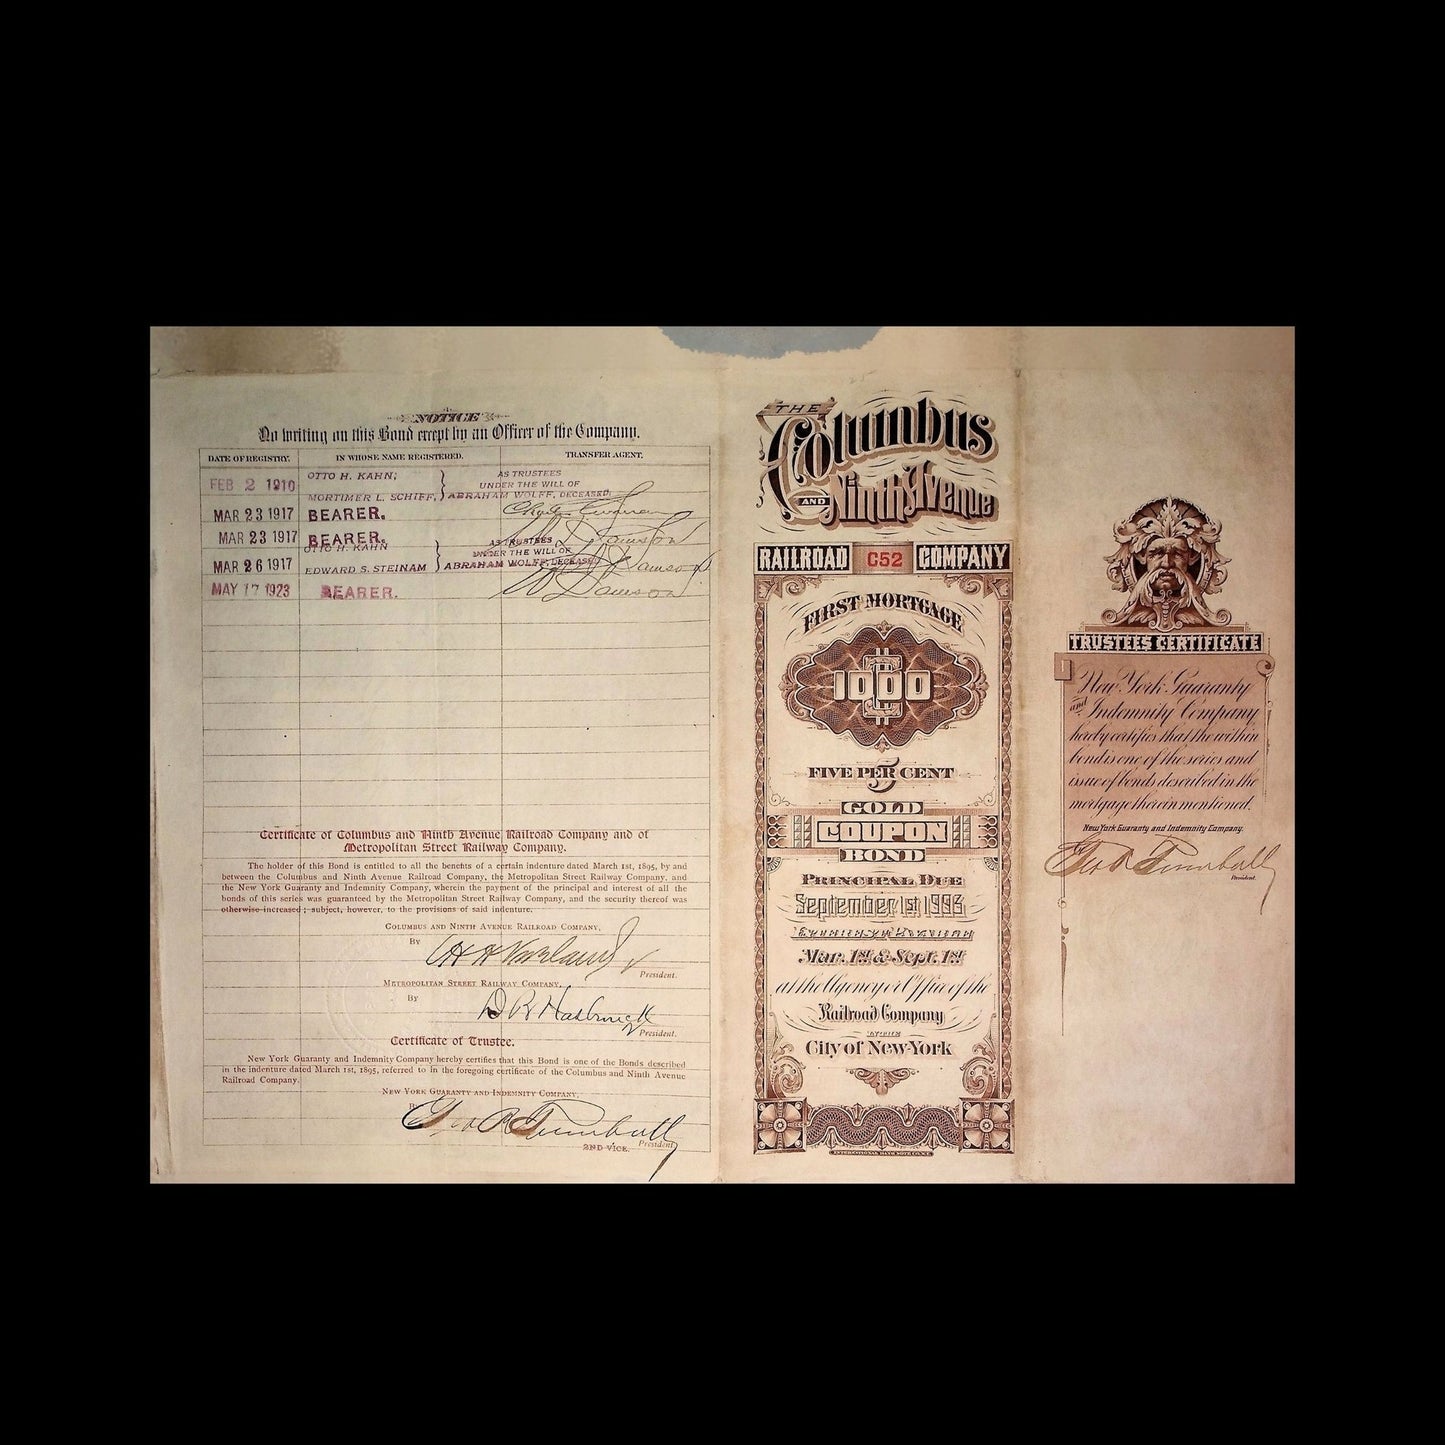 NOTICE
No writing on this Bond except by an Officer of the Company.
DATE OF REGISTRY. IN WHOSE NAME REGISTERED. TRANSFER AGENT.
FEB 2 1910 OTTO H. KAHN; MORTIMER L. SCHIFF, } AS TRUSTEES UNDER THE WILL OF ABRAHAM WOLFF, DECEASED
MAR 23 1917 BEARER.
MAR 23 1917 BEARER.
MAR 26 1917 OTTO H. KAHN EDWARD S. STEINAM } AS TRUSTEES UNDER THE WILL OF ABRAHAM WOLFF, DECEASED
MAY 17 1923 BEARER.
Certificate of Columbus and Ninth Avenue Railroad Company and of
Metropolitan Street Railway Company.
The holder of this Bond is entitled to all the benefits of a certain indenture dated March 1st, 1895, by and
between the Columbus and Ninth Avenue Railroad Company, the Metropolitan Street Railway Company, and
the New York Guaranty and Indemnity Company, wherein the payment of the principal and interest of all the
bonds of this series was guaranteed by the Metropolitan Street Railway Company, and the security thereof was
otherwise increased; subject, however, to the provisions of said indenture.
COLUMBUS AND NINTH AVENUE RAILROAD COMPANY,
By
President.
METROPOLITAN STREET RAILWAY COMPANY,
By
President.
Certificate of Trustee.
New York Guaranty and Indemnity Company hereby certifies that this Bond is one of the Bonds described
in the indenture dated March 1st, 1895, referred to in the foregoing certificate of the Columbus and Ninth Avenue
Railroad Company.
NEW YORK GUARANTY AND INDEMNITY COMPANY,
By Geo R Turnbull
2ND VICE. President
THE
Columbus
AND Ninth Avenue
RAILROAD C52 COMPANY
FIRST MORTGAGE
1000
FIVE PER CENT
5
GOLD
COUPON
BOND
PRINCIPAL DUE
September 1st 1993
Mar. 1st & Sept. 1st
at the Agency or Office of the
Railroad Company
IN THE
City of New-York
TRUSTEES CERTIFICATE
New York Guaranty
and Indemnity Company
hereby certifies that the within
bond is one of the series and
issue of bonds described in the
mortgage therein mentioned.
New York Guaranty and Indemnity Company.
Geo R Turnbull
President.